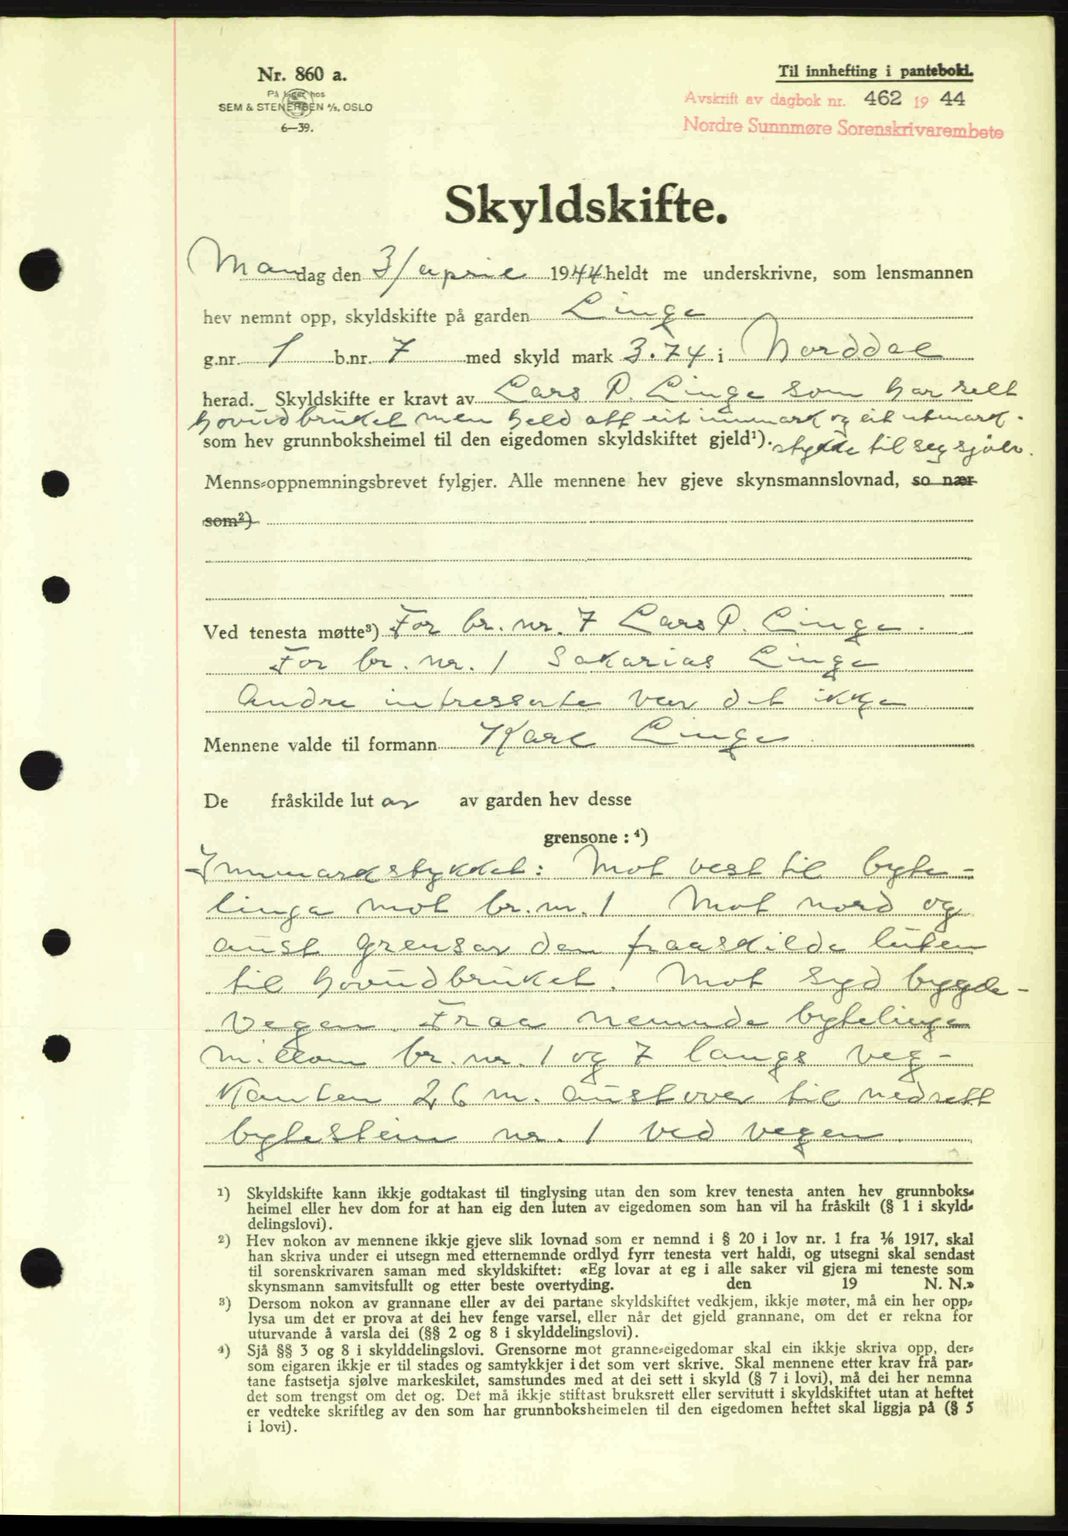 Nr. 860 a.
På lager hos
SEM & STENERSEN A/S, OSLO
6—39.
Til innhefting i panteboki.
Avskrift av dagbok nr. 462 19 44
Nordre Sunnmøre Sorenskrivarembete
Skyldskifte.
Mandag den 3/april 1944 heldt me underskrivne, som lensmannen
hev nemnt opp, skyldskifte på garden Linge
g.nr. 1 b.nr. 7 med skyld mark 3.74 i Norddal
herad. Skyldskifte er kravt av Lars P. Linge som har selt
hovudbruket men held att eit innmark og eit utmark-
som hev grunnboksheimel til den eigedomen skyldskiftet gjeld¹). stykke til seg sjølv.
Menns-oppnemningsbrevet fylgjer. Alle mennene hev gjeve skynsmannslovnad, so nær
som²)
Ved tenesta møtte³) For br. nr. 7 Lars P. Linge.
For br. nr. 1 Sakarias Linge
Andre intressente var det ikkje
Mennene valde til formann Karl Linge.
De fråskilde lutar av garden hev desse
grensone : ⁴)
Innmarkstykket: Mot vest til byte-
linga mot br. nr. 1 Mot nord og
aust grensar den fraaskilde luten
til hovudbruket. Mot syd bygde-
vegen. Fraa nemnde bytelinje
millom br. nr. 1 og 7 langs veg-
kanten 26 m. austover til nedsett
bytestein nr. 1 ved vegen.
¹) Skyldskifte kann ikkje godtakast til tinglysing utan den som krev tenesta anten hev grunnboks-
heimel eller hev dom for at han eig den luten av eigedomen som han vil ha fråskilt (§ 1 i skyld-
delingslovi).
²) Hev nokon av mennene ikkje gjeve slik lovnad som er nemnd i § 20 i lov nr. 1 fra ⅙ 1917, skal
han skriva under ei utsegn med etternemnde ordlyd fyrr tenesta vert haldi, og utsegni skal sendast
til sorenskrivaren saman med skyldskiftet: «Eg lovar at eg i alle saker vil gjera mi teneste som
skynsmann samvitsfullt og etter beste overtyding. den 19 N. N.»
³) Dersom nokon av grannane eller av dei partane skyldskiftet vedkjem, ikkje møter, må ein her opp-
lysa um det er prova at dei hev fenge varsel, eller når det gjeld grannane, om det er rekna for
uturvande å varsla dei (§§ 2 og 8 i skylddelingslovi).
⁴) Sjå §§ 3 og 8 i skylddelingslovi. Grensorne mot granne-eigedomar skal ein ikkje skriva opp, der-
som eigaren ikkje er til stades og samtykkjer i det som vert skrive. Skal mennene etter krav frå par-
tane fastsetja sjølve markeskilet, samstundes med at dei sett i skyld (§ 7 i lovi), må dei her nemna
det som trengst om det og. Det må ikkje stiftast bruksrett eller servitutt i skyldskiftet utan at heftet
er vedteke skriftleg av den som har grunnboksheimelen til den eigedomen heftet skal liggja på (§ 5
i lovi).